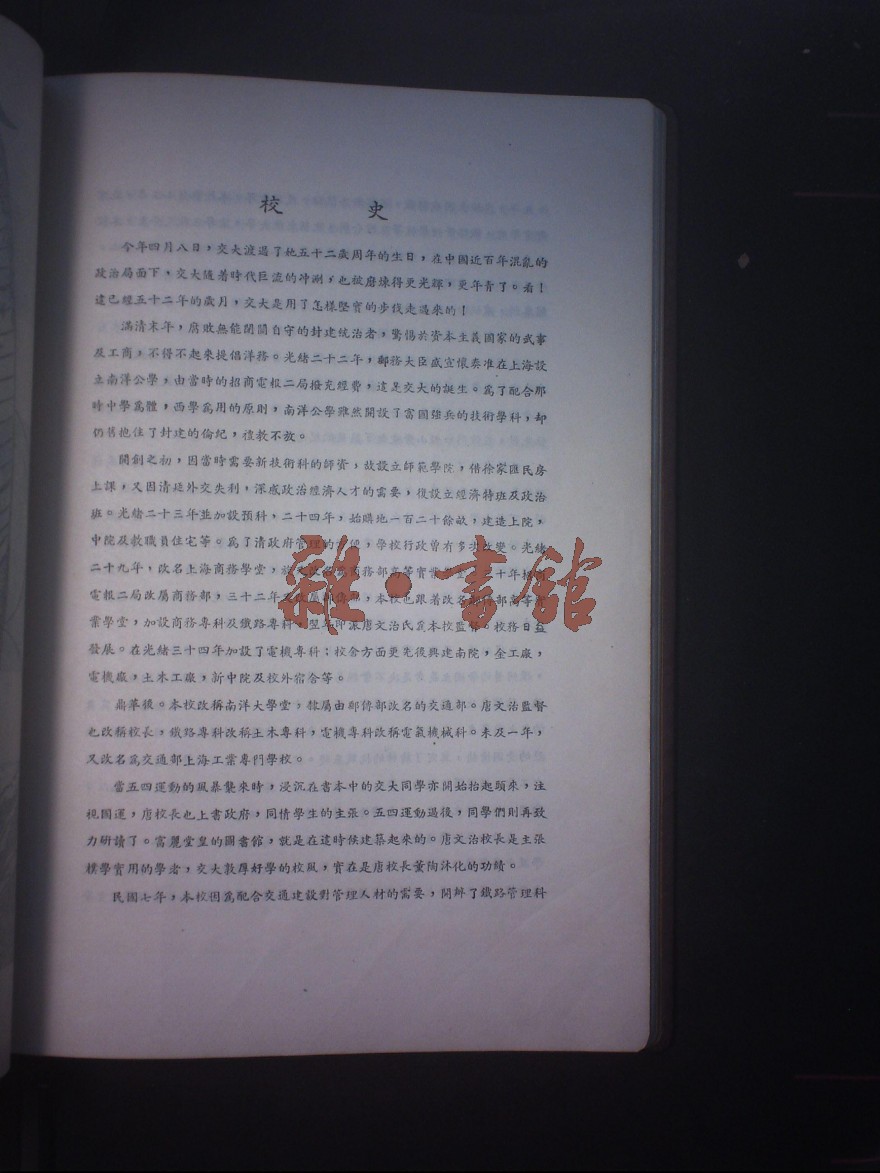 校 史
今年四月八日，交大渡過了她五十二歲周年的生日，在中國近百年混亂的
政治局面下，交大隨着時代巨流的冲涮，也被磨煉得更光輝，更年青了。看！
這已經五十二年的歲月，交大是用了怎樣堅實的步伐走過來的！
滿清末年，腐敗無能閉關自守的封建統治者，驚惕於資本主義國家的武事
及工商，不得不起來提倡洋務。光緒二十二年，郵務大臣盛宣懷奏准在上海設
立南洋公學，由當時的招商電報二局撥充經費，這是交大的誕生。爲了配合那
時中學爲體，西學爲用的原則，南洋公學雖然開設了富國強兵的技術學科，却
仍舊抱住了封建的倫紀，禮教不放。
開創之初，因當時需要新技術科的師資，故設立師範學院，借徐家匯民房
上課，又因清廷外交失利，深感政治經濟人才的需要，復設立經濟特班及政治
班。光緒二十三年並加設預科，二十四年，始購地一百二十餘畝，建造上院，
中院及教職員住宅等。爲了清政府管理的方便，學校行政曾有多次改變。光緒
二十九年，改名上海商務學堂，旋又改名爲商務部高等實業學堂。三十年招商
電報二局改屬商務部，三十二年又改屬郵傳部，本校也跟着改名郵傳部高等實
業學堂，加設商務專科及鐵路專科，翌年即派唐文治氏爲本校監督。校務日益
發展。在光緒三十四年加設了電機專科；校舍方面更先後興建南院，金工廠，
電機廠，土木工廠，新中院及校外宿舍等。
鼎革後。本校改稱南洋大學堂，隸屬由郵傳部改名的交通部。唐文治監督
也改稱校長，鐵路專科改稱土木專科，電機專科改稱電氣機械科。未及一年，
又改名爲交通部上海工業專門學校。
當五四運動的風暴襲來時，浸沉在書本中的交大同學亦開始抬起頭來，注
視國運，唐校長也上書政府，同情學生的主張。五四運動過後，同學們則再致
力研讀了。富麗堂皇的圖書館，就是在這時候建築起來的。唐文治校長是主張
樸學實用的學者，交大敦厚好學的校風，實在是唐校長薰陶沐化的功績。
民國七年，本校因爲配合交通建設對管理人材的需要，開辦了鐵路管理科
雜·書館